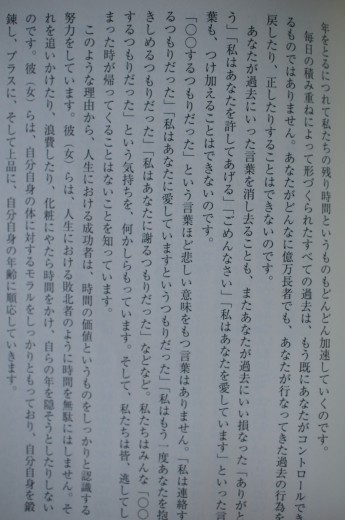 年をとるにつれて私たちの残り時間というものもどんどん加速していくのです。
毎日の積み重ねによって形づくられたすべての過去は、もう既にあなたがコントロールでき
るものではありません。あなたがどんなに億万長者でも、あなたが行なってきた過去の行為を
戻したり、正したりすることはできないのです。
あなたが過去にいった言葉を消し去ることも、またあなたが過去にいい損なった「ありがと
う」「私はあなたを許してあげる」「ごめんなさい」「私はあなたを愛しています」といった言
葉も、つけ加えることはできないのです。
「○○するつもりだった」という言葉ほど悲しい意味をもつ言葉はありません。「私は連絡す
るつもりだった」「私はあなたに愛していますというつもりだった」「私はもう一度あなたを抱
きしめるつもりだった」「私はあなたに謝るつもりだった」などなど。私たちはみんな「○○
するつもりだった」という気持ちを、何かしらもっています。そして、私たちは皆、逃してし
まった時が帰ってくることはないことを知っています。
このような理由から、人生における成功者は、時間の価値というものをしっかりと認識する
努力をしています。彼(女)らは、人生における敗北者のように時間を無駄にはしません。そ
れを追いかけたり、浪費したり、化粧にやたら時間をかけ、自らの年を隠そうとしたりしない
のです。彼(女)らは、自分自身の体に対するモラルをしっかりともっており、自分自身を鍛
錬し、プラスに、そして上品に、自分自身の年齢に順応していきます。